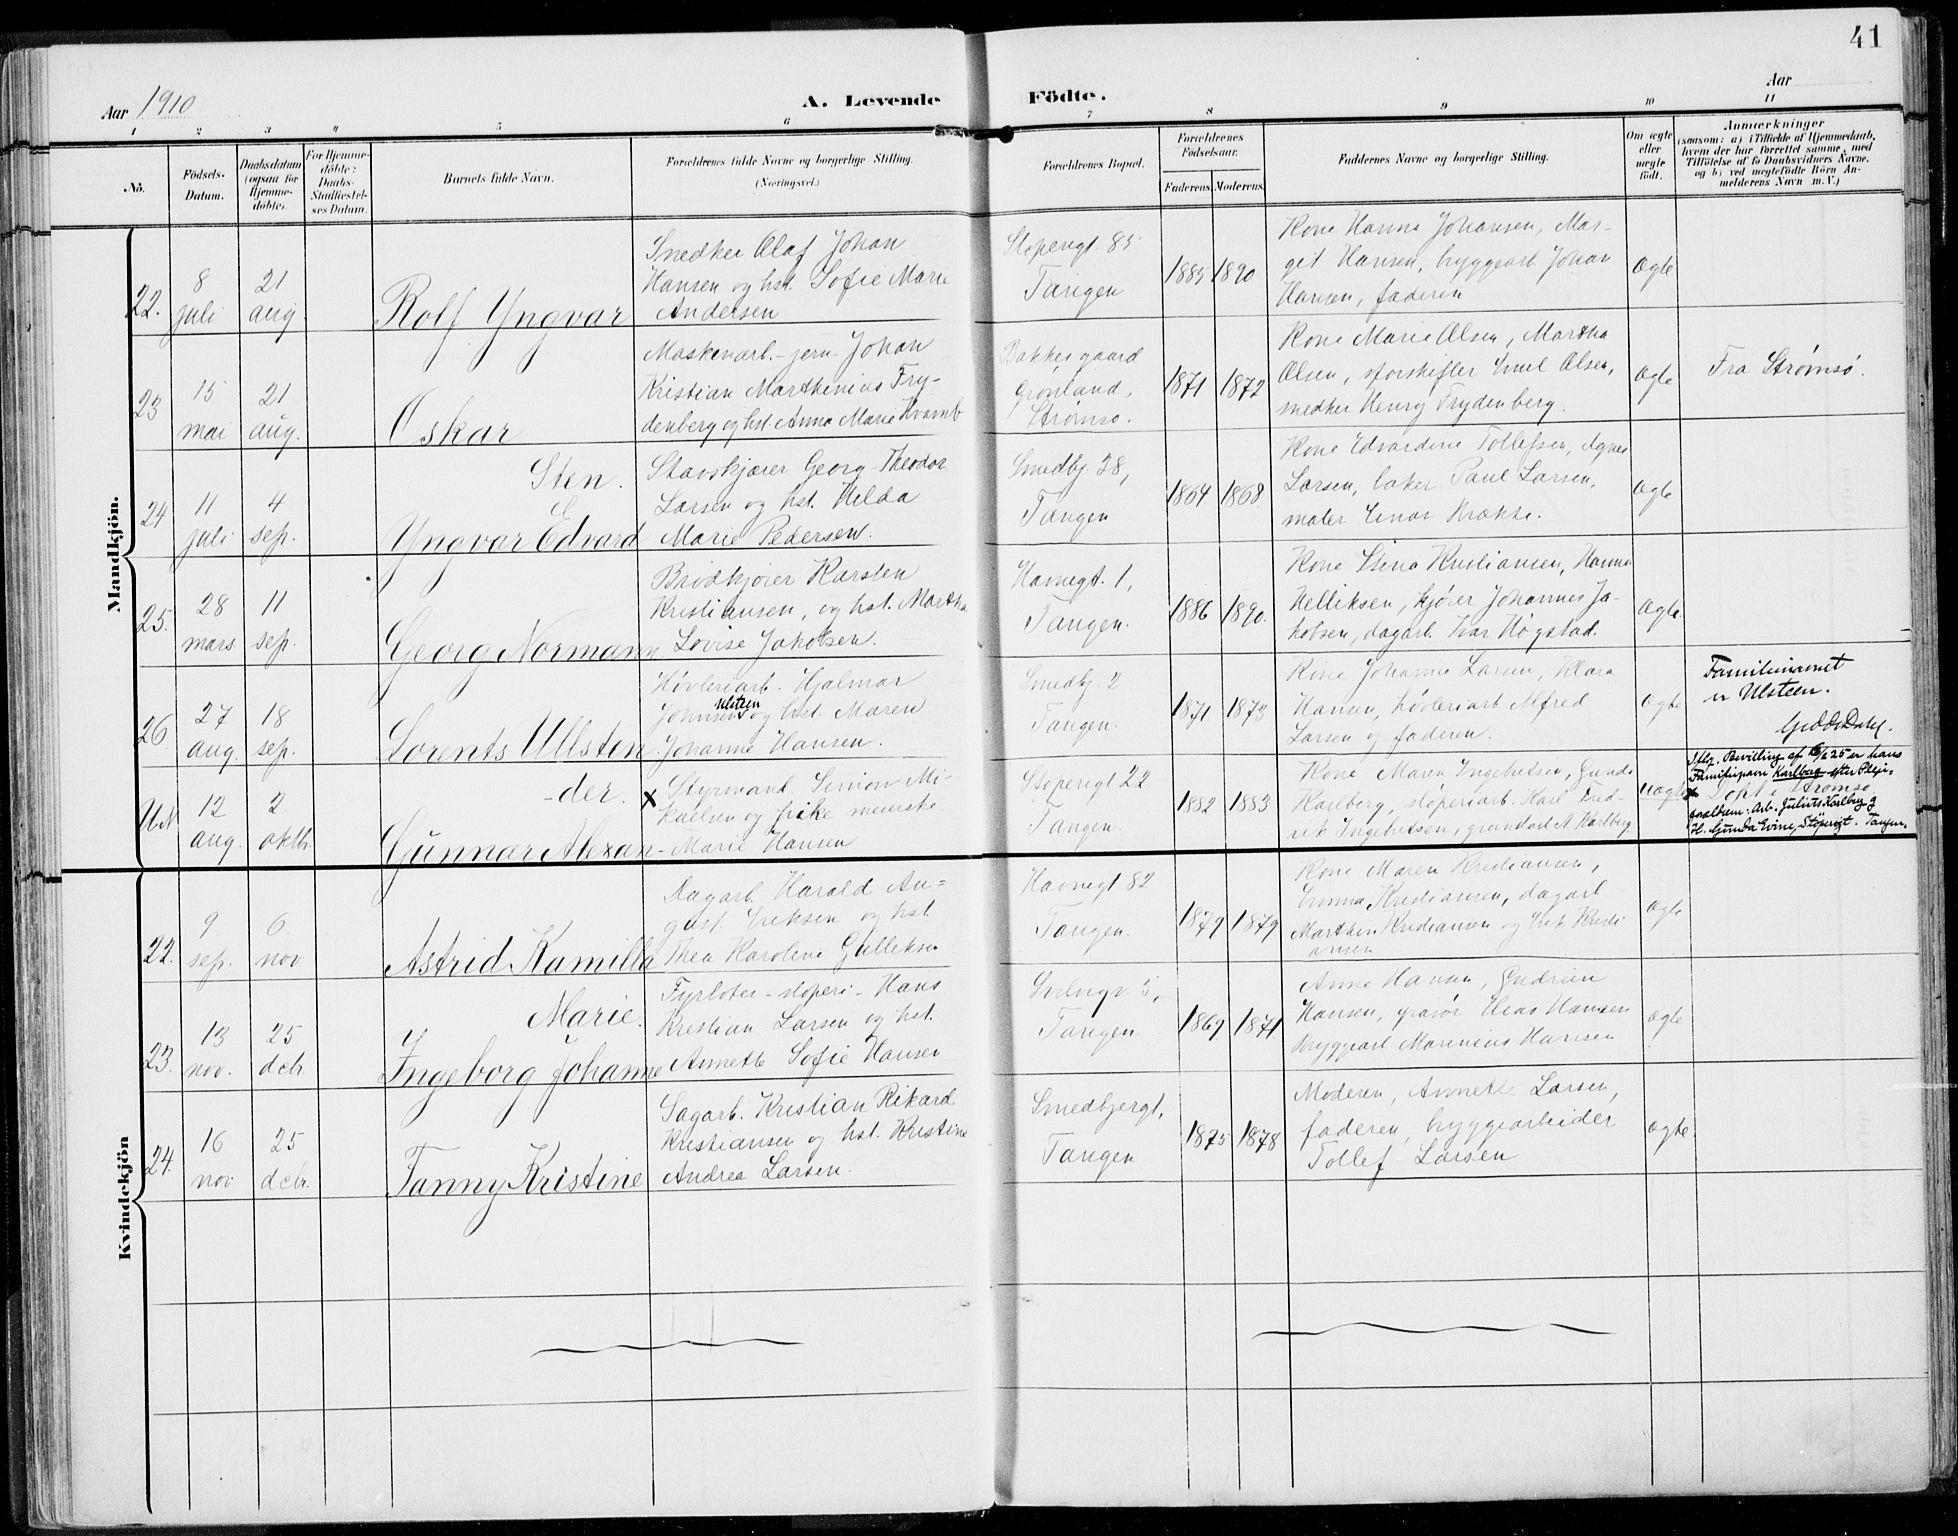 41
Aar 1910
A. Levende Födte.
Aar
1 2 3 4 5 6 7 8 9 10 11
No.
Födsels-
Datum.
Daabsdatum
(ogsaa for
Hjemme-
döbte).
For Hjemme-
döbte;
Daabs-
Stadfæstel-
ses Datum.
Barnets fulde Navn.
Forældrenes fulde Navne og borgerlige Stilling.
(Næringsvei.)
Forældrenes Bopæl.
Forældrenes
Födselsaar.
Faderens. Moderens.
Faddernes Navne og borgerlige Stilling.
Om ægte
eller
uægte
födt.
Anmærkninger
(saasom: a) i Tilfælde af Hjemmedaab,
hvem der har forrettet samme, med
Tilföielse af to Daabsvidners Navne,
og b) ved uægtefödte Börn An-
melderens Navn m. V.)
Mandkjön.
22.
8
juli
21
aug
Rolf Yngvar
Snedker Olaf Johan
Hansen og hst. Sofie Marie
Andersen
Stoperigt. 85
Tangen
1885 1890
Kone Hanna Johansen, Mar-
git Hansen, byggearb. Johan
Hansen, faderen
Ægte
23
15
mai
21
aug.
Oskar
Maskenarb. - jern - Johan
Kristian Marthinius Fry-
denberg og hst. Anna Marie Kvamb
Bakkegaard
Grönland,
Strømsø.
1871 1872
Kone Marie Olsen, Martha
Olsen, sporskifter Emil Olsen,
snedker Henry Frydenberg.
Ægte
Fra Strømsø.
24
11
juli
4
sep.
Sten.
Yngvar Edvard
Stavskjærer Georg Theodor
Larsen og hst. Hilda
Marie Pedersen.
Smedbj. 38,
Tangen
1864 1868
Kone Edvardine Tollefsen, Agnes
Larsen, baker Paul Larsen,
maler Einar Krække.
Ægte
25.
28
mars
11
sep.
Georg Normann
Brödkjører Karsten
Kristiansen, og hst. Martha
Lovise Jakobsen.
Havnegt. 1,
Tangen.
1886 1890.
Kone Stina Kristiansen, Hanna
Helliksen, kjører Johannes Ja-
kobsen, dagarb. Ivar Høgstad.
Ægte.
26
27
aug.
18
sep.
Lorents Ullsten
Høvleriarb. Hjalmar
Ulsteen
Johnsen og hst. Maren
Johanne Hansen.
Smedbj. 2
Tangen.
1871 1873
Kone Johanne Larsen, Klara
Hansen, høvleriarb Alfred
Larsen og faderen.
Ægte
Familienavnet
er Ulsteen.
12
aug.
2
oktb.
-der.
Gunnar Alexan-
x Styrmand Simon Mi-
kaelsen og pike meierske
Marie Hansen
Stoperigt 22
Tangen.
1882 1883
Kone Maren Ingebretsen, Gunda
Karlberg, støperiarb. Karl Fred-
rik Ingebretsen, grundarb A. Karlberg.
Uægte
Iflg. Bevilling af 25 er hans
Familienavn Karlberg efter Pleje-
x Döpt i Strømsø
forældrene: Arb. Julius Karlberg og
H. Gunda Evine, Stöperigt. Tangen.
Kvindekjön
22.
9
sep.
6
nov
Astrid Kamilla
Dagarb. Harald Au-
gust Eriksen og hst.
Thea Karoline Gulleksen
Havnegt 82
Tangen.
1879 1879
Kone Maren Kristiansen,
Emma Kristiansen, dagarb
Marthin Kristiansen og Erik Kristi
ansen
Ægte
23.
13
nov.
25
decb
Marie.
Ingeborg Johanne
Fyrbøter - støperi - Hans
Kristian Larsen og hst.
Annette Sofie Hansen
5,
Tangen.
1869 1871
Anna Hansen, Gudrun
Hansen, gravør Hans Hansen
byggearb Marinius Hansen
Ægte
24.
16
nov
25
decb.
Fanny Kristine
Sagarb. Kristian Rikard
Kristiansen og hst. Kristine
Andrea Larsen.
Smedbjergt,
Tangen
1875 1878
Moderen, Annette Larsen,
faderen, byggearbeider
Tollef Larsen
Ægte